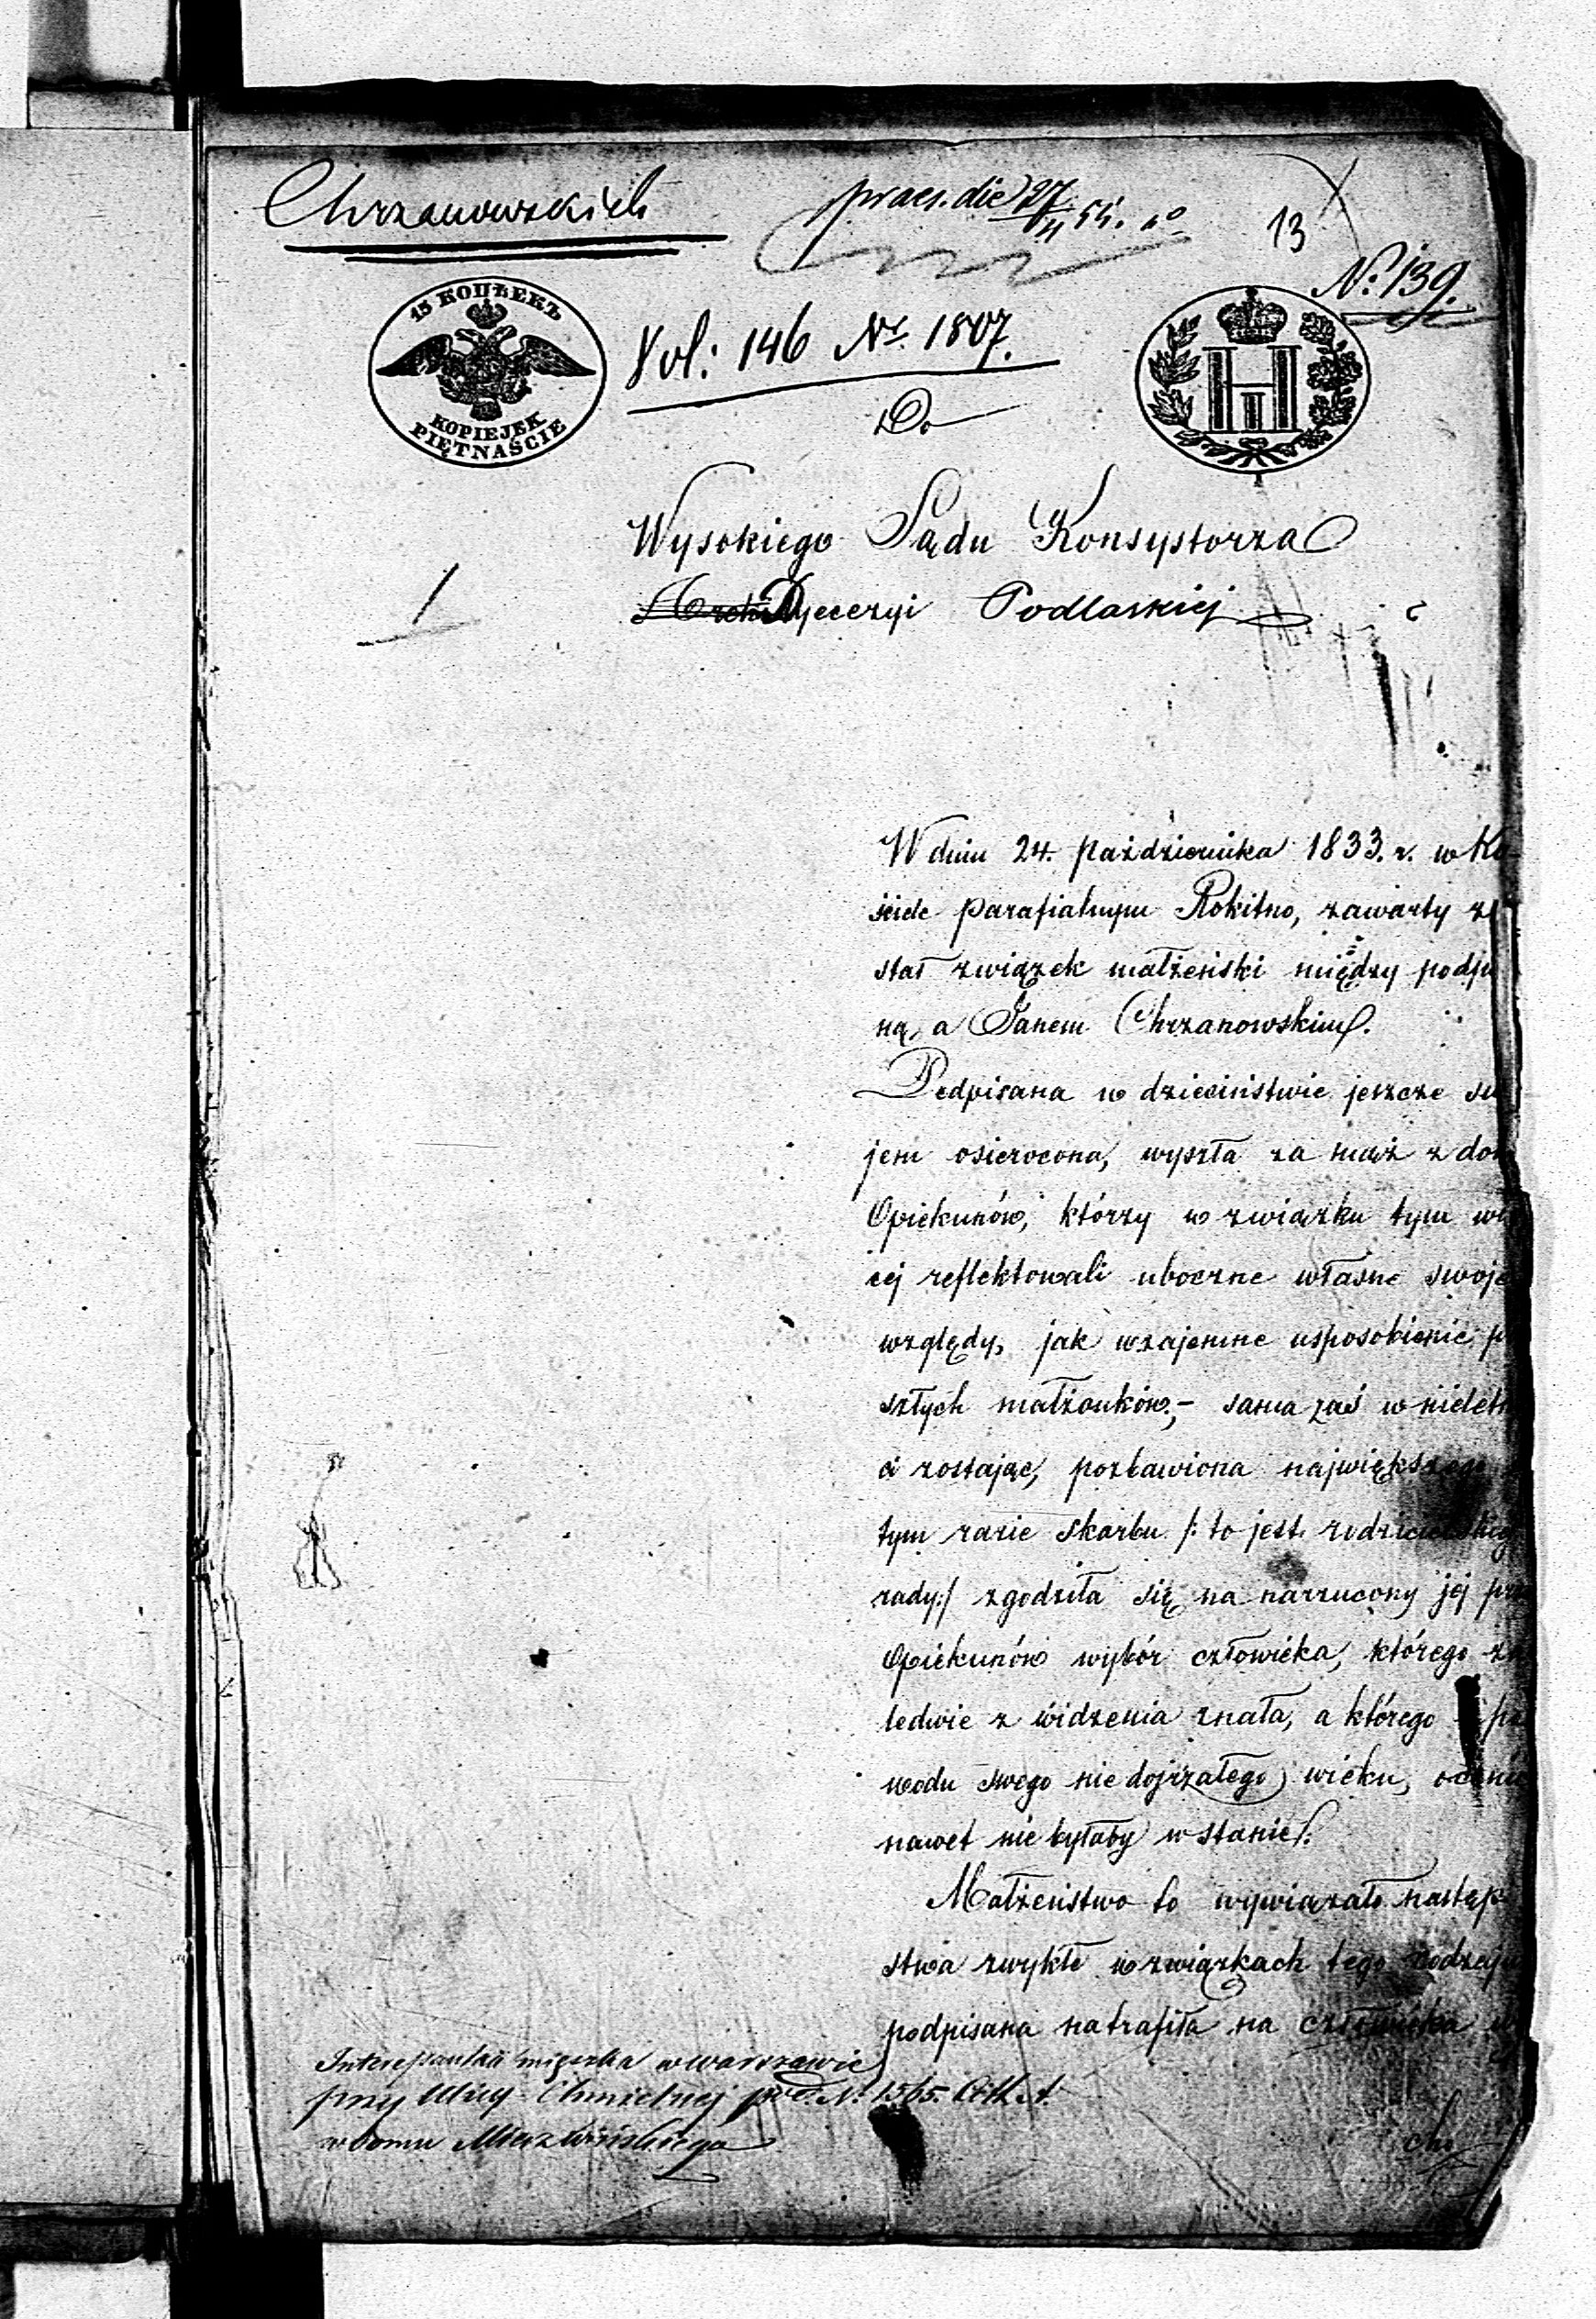 Chrzanowskich
praes. die 27/4 55.
13
N: 139.
15 КОПѢЕКЪ
KOPIEJEK
PIĘTNAŚCIE
Vol: 146 Nr 1807.
Do
Wysokiego Sądu Konsystorza
Dyecezyi Podlaskiej
1
W dniu 24. października 1833. r. w Ko-
ściele parafialnym Rokitno, zawarty
stał związek małżeński między
ną, a Janem Chrzanowskim.
Podpisana w dzieciństwie jeszcze
jem osierocona, wyszła za mąż z
Opiekunów, którzy w związku tym
cej reflektowali uboczne własne swoje
względy, jak wzajemne usposobienie
szłych małżonków,- sama zaś w
ci zostając, pozbawiona największego
tym razie skarbu /: to jest
rady:/ zgodziła się na narzucony jej
Opiekunów wybór człowieka, którego
ledwie z widzenia znała, a którego
wodu swego nie dojrzałego wieku,
nawet nie byłaby w stanie.
Małżeństwo to wywiązało następ
stwa zwykłe w związkach tego rodzaju
podpisana natrafiła na człowieka
Interessantka mieszka w Warszawie
przy Ulicy Chmielnej pod N. 1565. Litt. A.
w domu